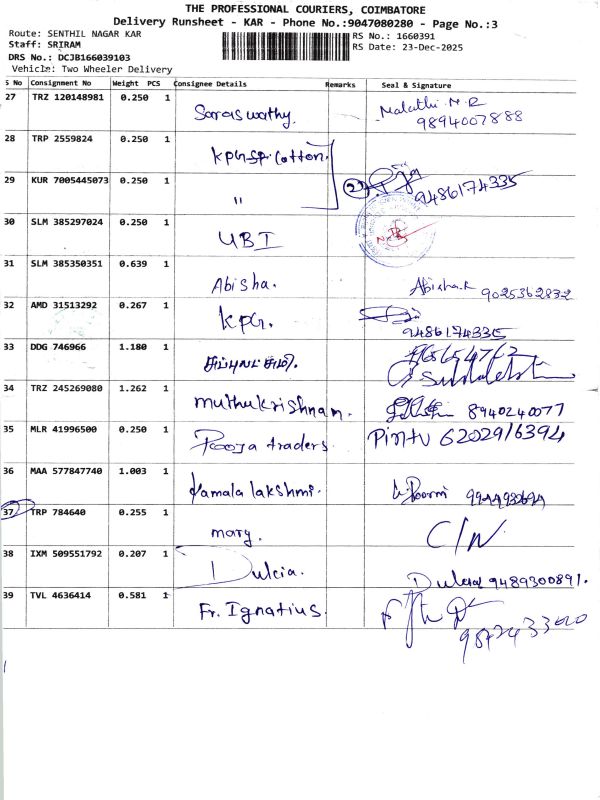 THE PROFESSIONAL COURIERS, COIMBATORE
Delivery Runsheet - KAR - Phone No.:9047080280 - Page No.:3
Route: SENTHIL NAGAR KAR
RS No.: 1660391
Staff: SRIRAM
RS Date: 23-Dec-2025
DRS No.: DCJB166039103
Vehicle: Two Wheeler Delivery
S No Consignment No Weight PCS Consignee Details Remarks Seal & Signature
27 TRZ 120148981 0.250 1 Saraswathy. Malathi M.R 9894007888
28 TRP 2559824 0.250 1 KPG SP. Cotton.
29 KUR 7005445073 0.250 1 " 2 9486174335
30 SLM 385297024 0.250 1 UBI
31 SLM 385350351 0.639 1 Abisha. Abisha.R 9025362832
32 AMD 31513292 0.267 1 KPG. 9486174335
33 DDG 746966 1.180 1 சுப்புலட்சுமி.
34 TRZ 245269080 1.262 1 Muthukrishnan. 8940240077
35 MLR 41996500 0.250 1 Pooja traders. Pintu 6202916394
36 MAA 577847740 1.003 1 Kamala lakshmi.
37 TRP 784640 0.255 1 mary. C/N
38 IXM 509551792 0.207 1 Dulcia. Dulcia 9489300891.
39 TVL 4636414 0.581 1 Fr. Ignatius.